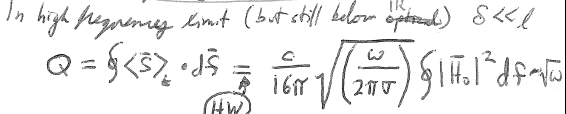 In high frequency limit (but still below IR optical) δ<<l
Q = ∮<S̄>_t · df̄ = c/16π √(ω/2πσ) ∮|H̄₀|² df ~ √ω
HW